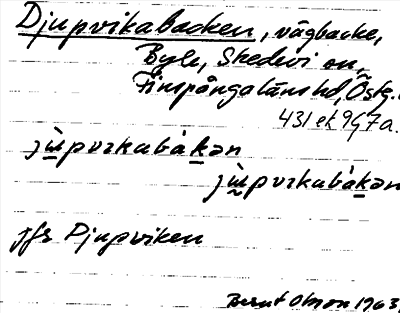 Djupvikabacken, vägbacke,
Byle, Skedevi sn,
Finspångaläns hd, Östg.
431 ek 9G7a.
jùpvɪkabàkən
jùpvɪkabàkən
jfr Djupviken
Bernt Olsson 1963